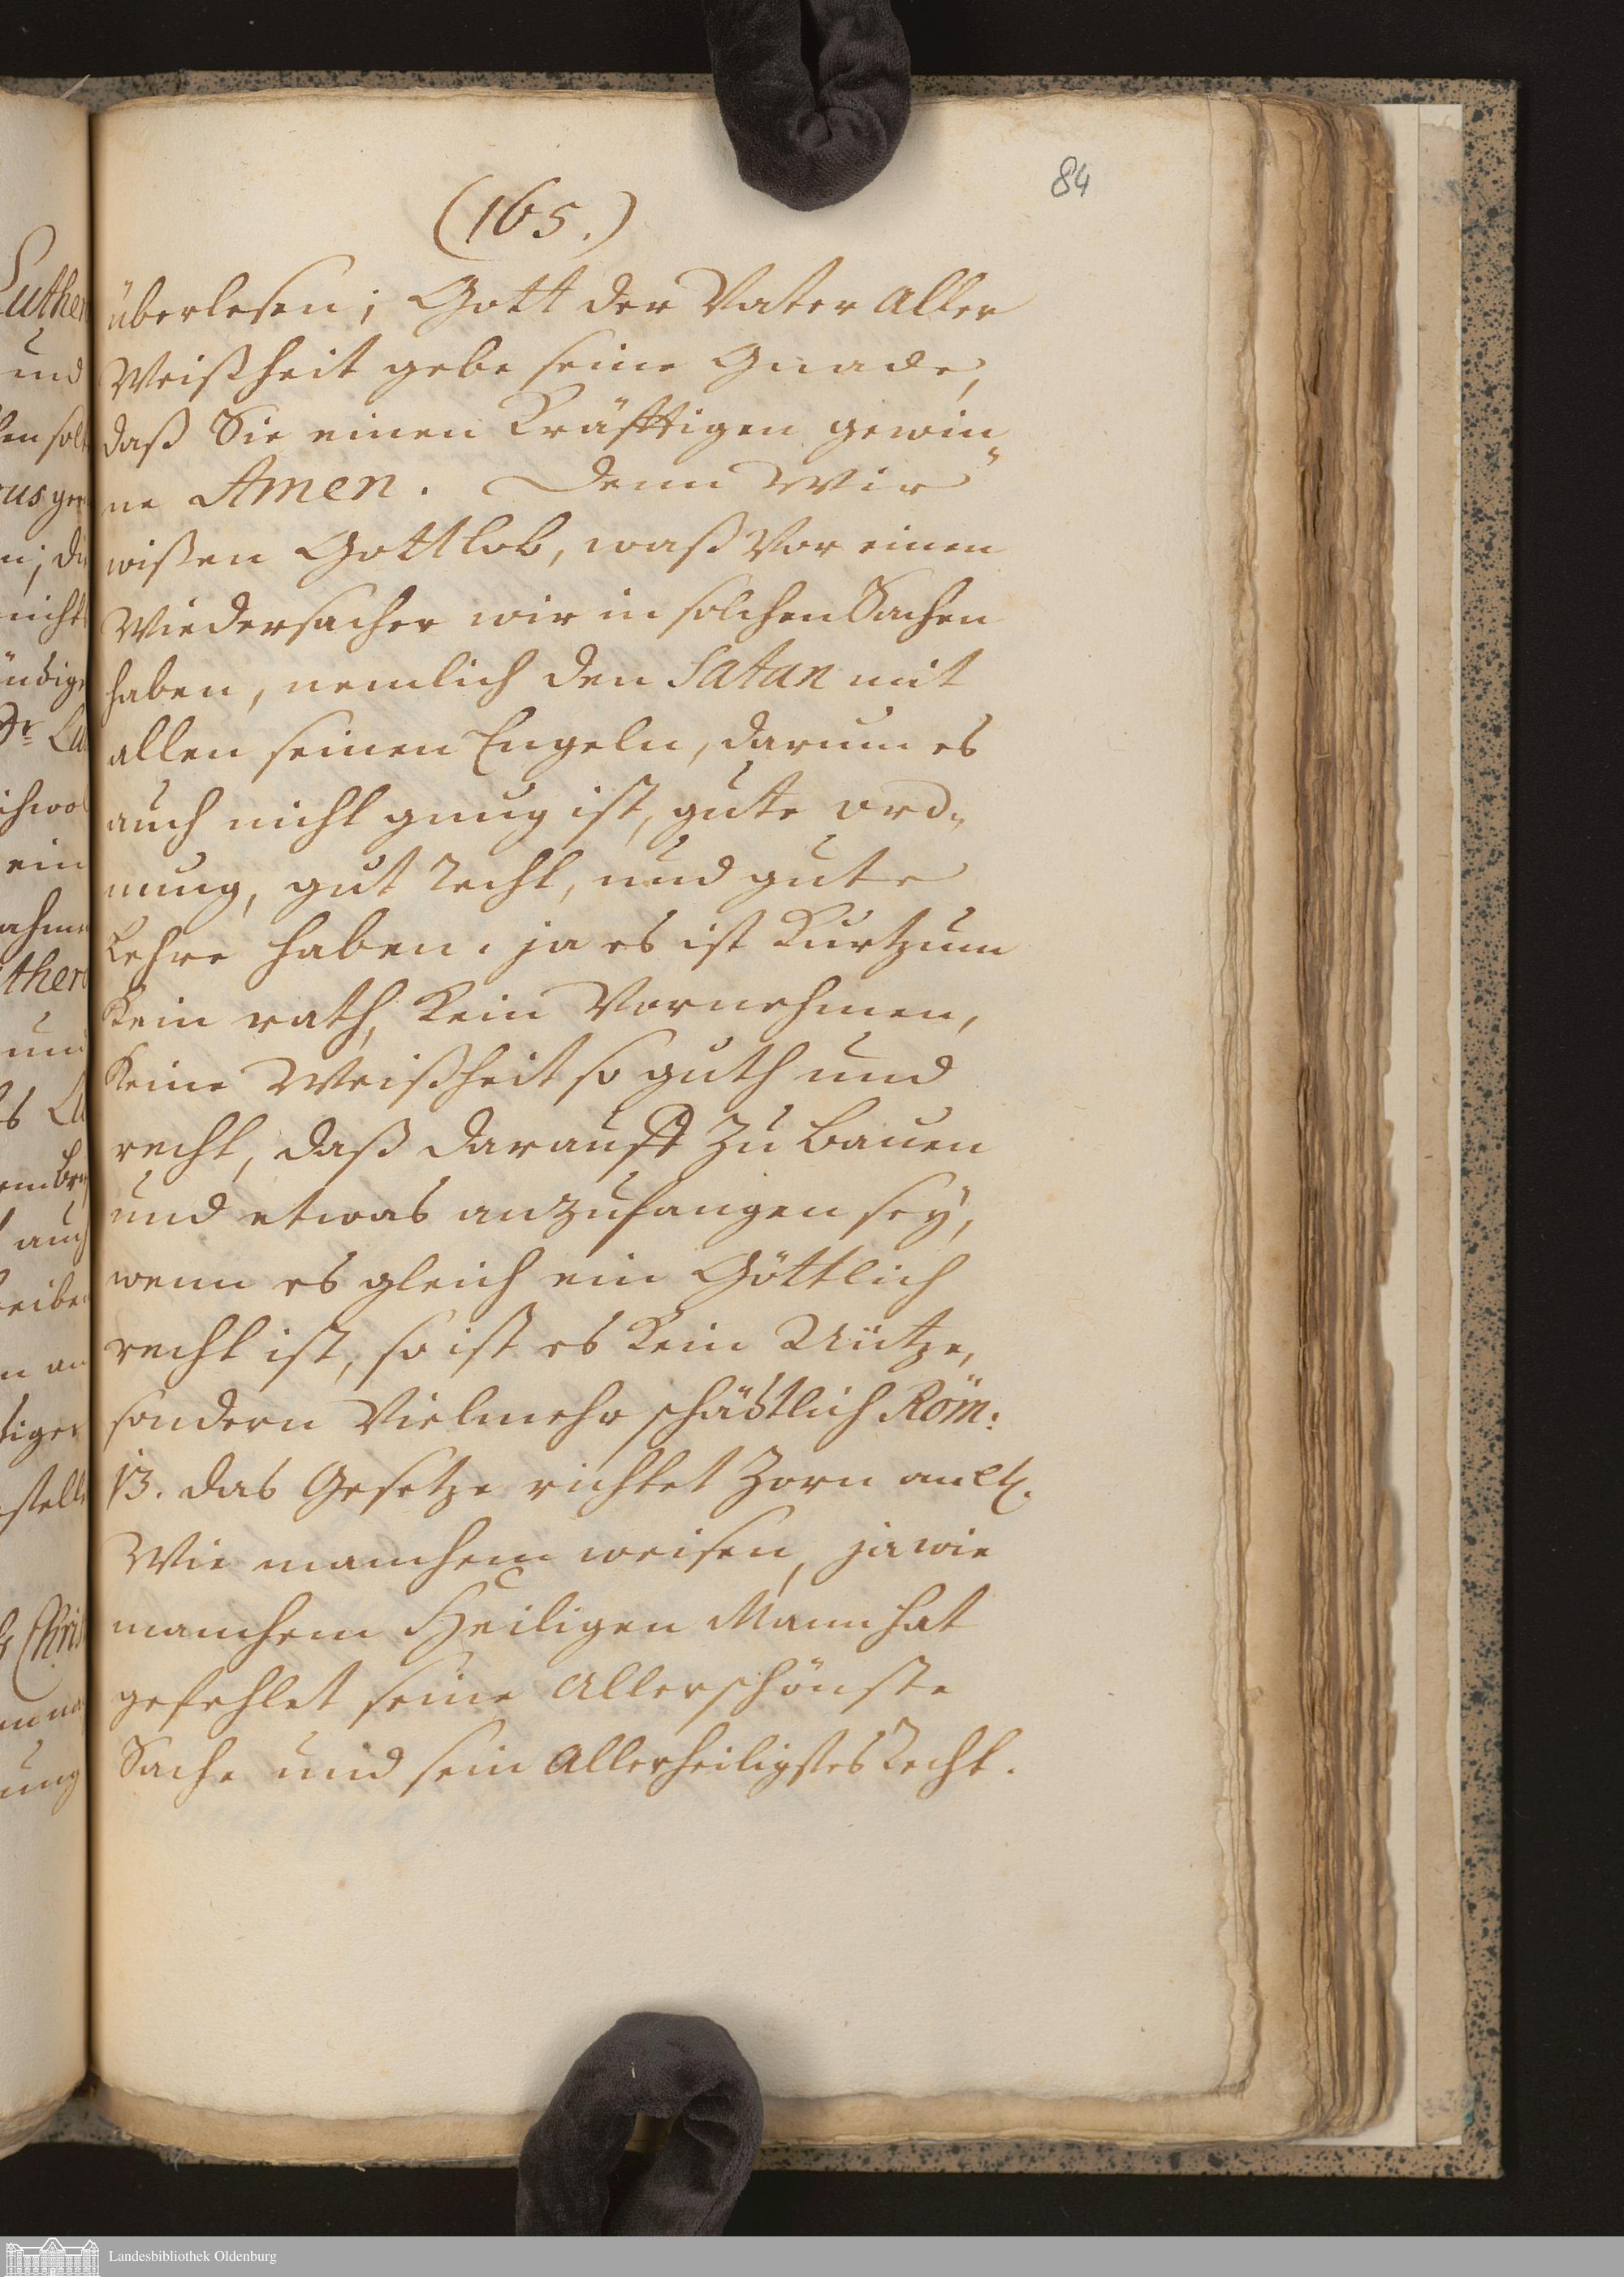 84
(165.)
überlesen; Gott der Vater aller
Weißheit gebe seine Gnade,
daß Sie einen Kräfftigen gewin„
ne Amen. Denn Wir
wißen Gottlob, waß Vor einen
Wiedersacher wir in solchen Sachen
haben, nemlich den Satan mit
allen seinen Engeln, darum es
auch nicht gnug ist, gute ord„
nung, gut Recht, und gute
Lehre haben. ja es ist Kurtzum
Kein rath, Kein Vornehmen,
Keine Weißheit so guth und
recht, daß darauff Zu bauen
und etwas anzufangen seÿ,
wenn es gleich ein Göttlich
recht ist, so ist es Kein Nütze,
sondern Vielmehr schädtlich Röm:
13. das Gesetze richtet Zorn an etc.
Wie manchem weisen, ja wie
manchem Heiligen Mann hat
gefehlet seine Allerschönste
Sache und sein Allerheiligstes Recht.
Luther
und
nicht
ein
und
stell
Landesbibliothek Oldenburg